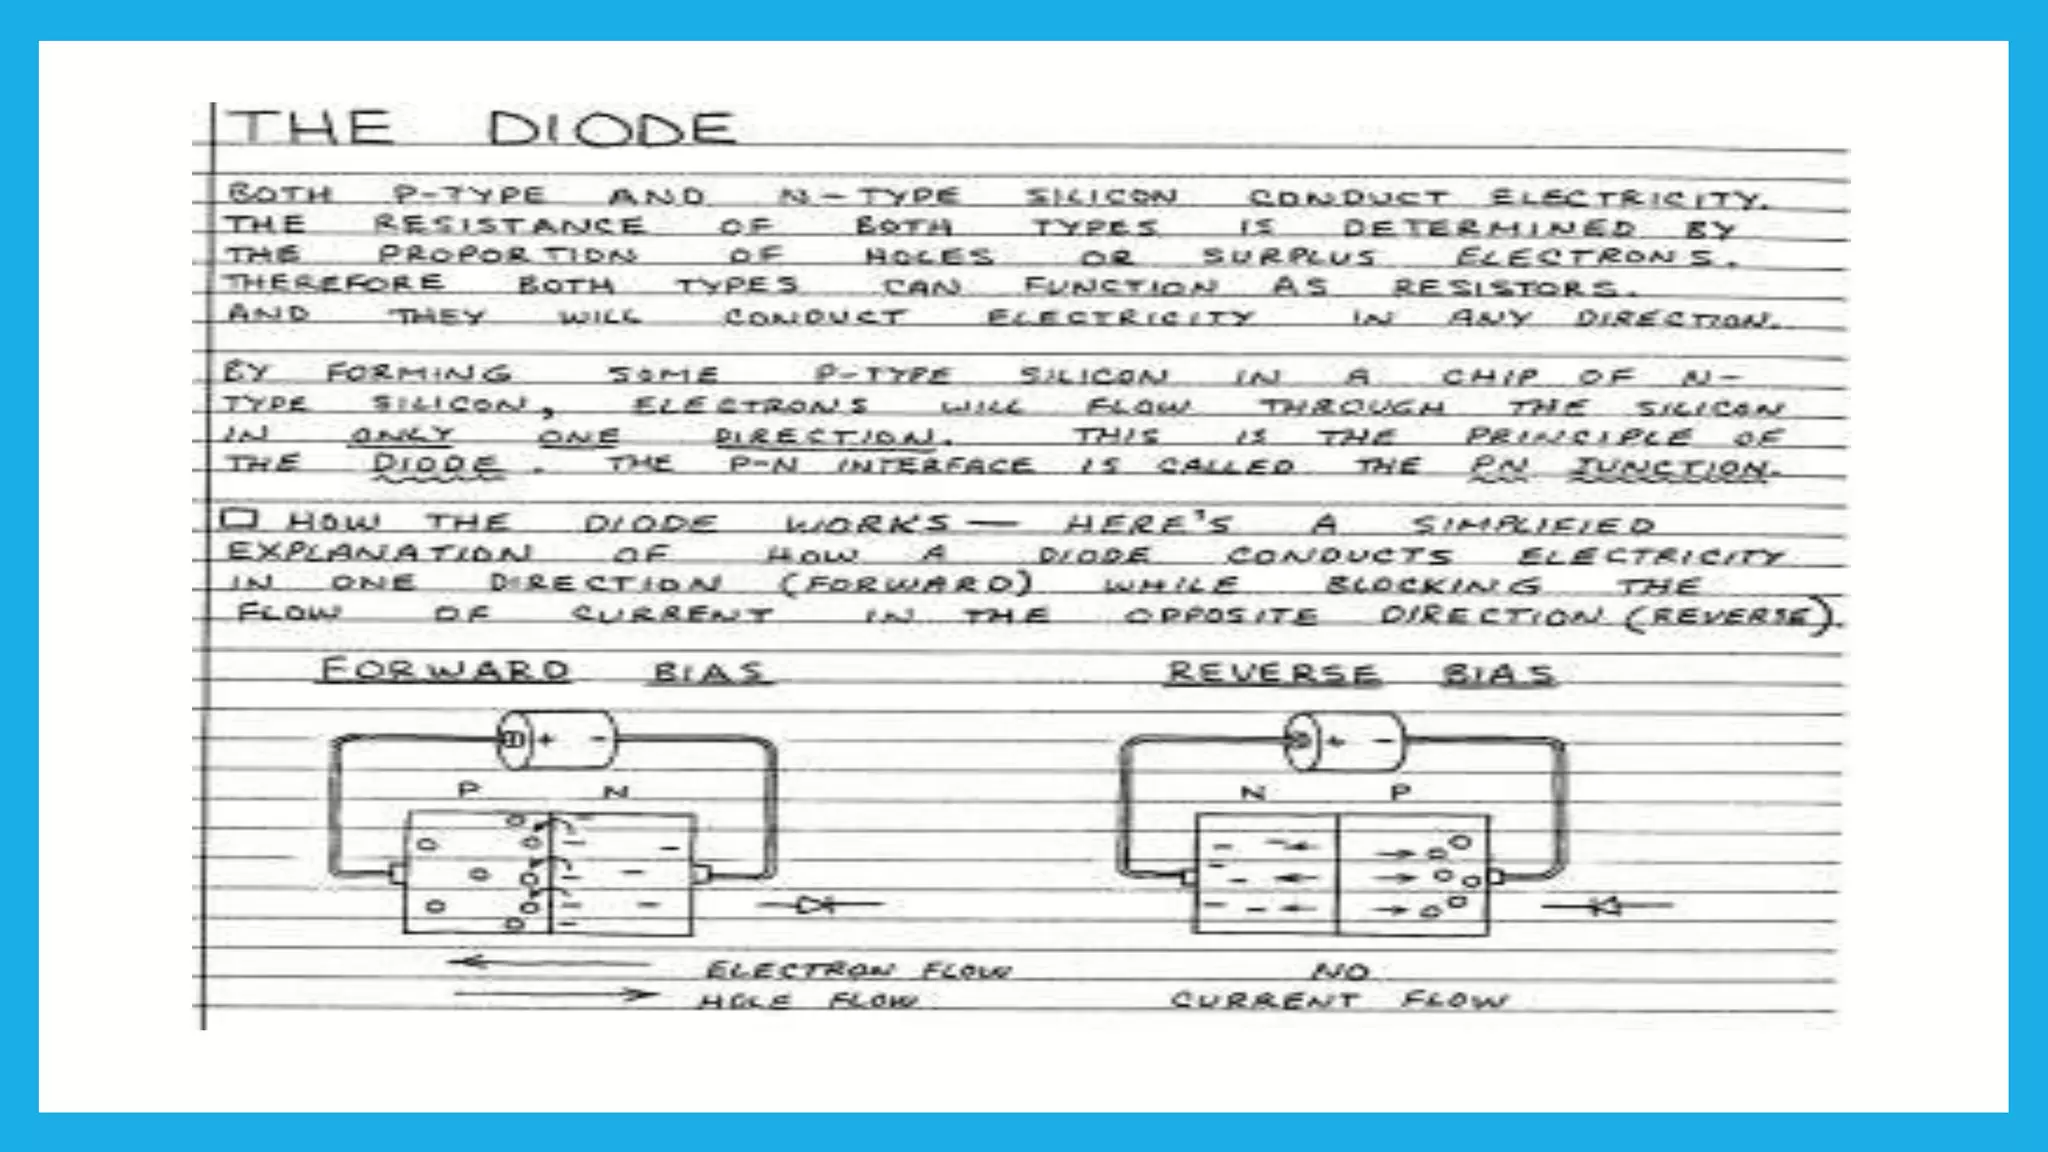 THE DIODE
BOTH P-TYPE AND N-TYPE SILICON CONDUCT ELECTRICITY.
THE RESISTANCE OF BOTH TYPES IS DETERMINED BY
THE PROPORTION OF HOLES OR SURPLUS ELECTRONS.
THEREFORE BOTH TYPES CAN FUNCTION AS RESISTORS.
AND THEY WILL CONDUCT ELECTRICITY IN ANY DIRECTION.
BY FORMING SOME P-TYPE SILICON IN A CHIP OF N-
TYPE SILICON, ELECTRONS WILL FLOW THROUGH THE SILICON
IN ONLY ONE DIRECTION. THIS IS THE PRINCIPLE OF
THE DIODE. THE P-N INTERFACE IS CALLED THE PN JUNCTION.
HOW THE DIODE WORKS — HERE'S A SIMPLIFIED
EXPLANATION OF HOW A DIODE CONDUCTS ELECTRICITY
IN ONE DIRECTION (FORWARD) WHILE BLOCKING THE
FLOW OF CURRENT IN THE OPPOSITE DIRECTION (REVERSE).
FORWARD BIAS
+ -
P N
ELECTRON FLOW
HOLE FLOW
REVERSE BIAS
+ -
N P
NO
CURRENT FLOW